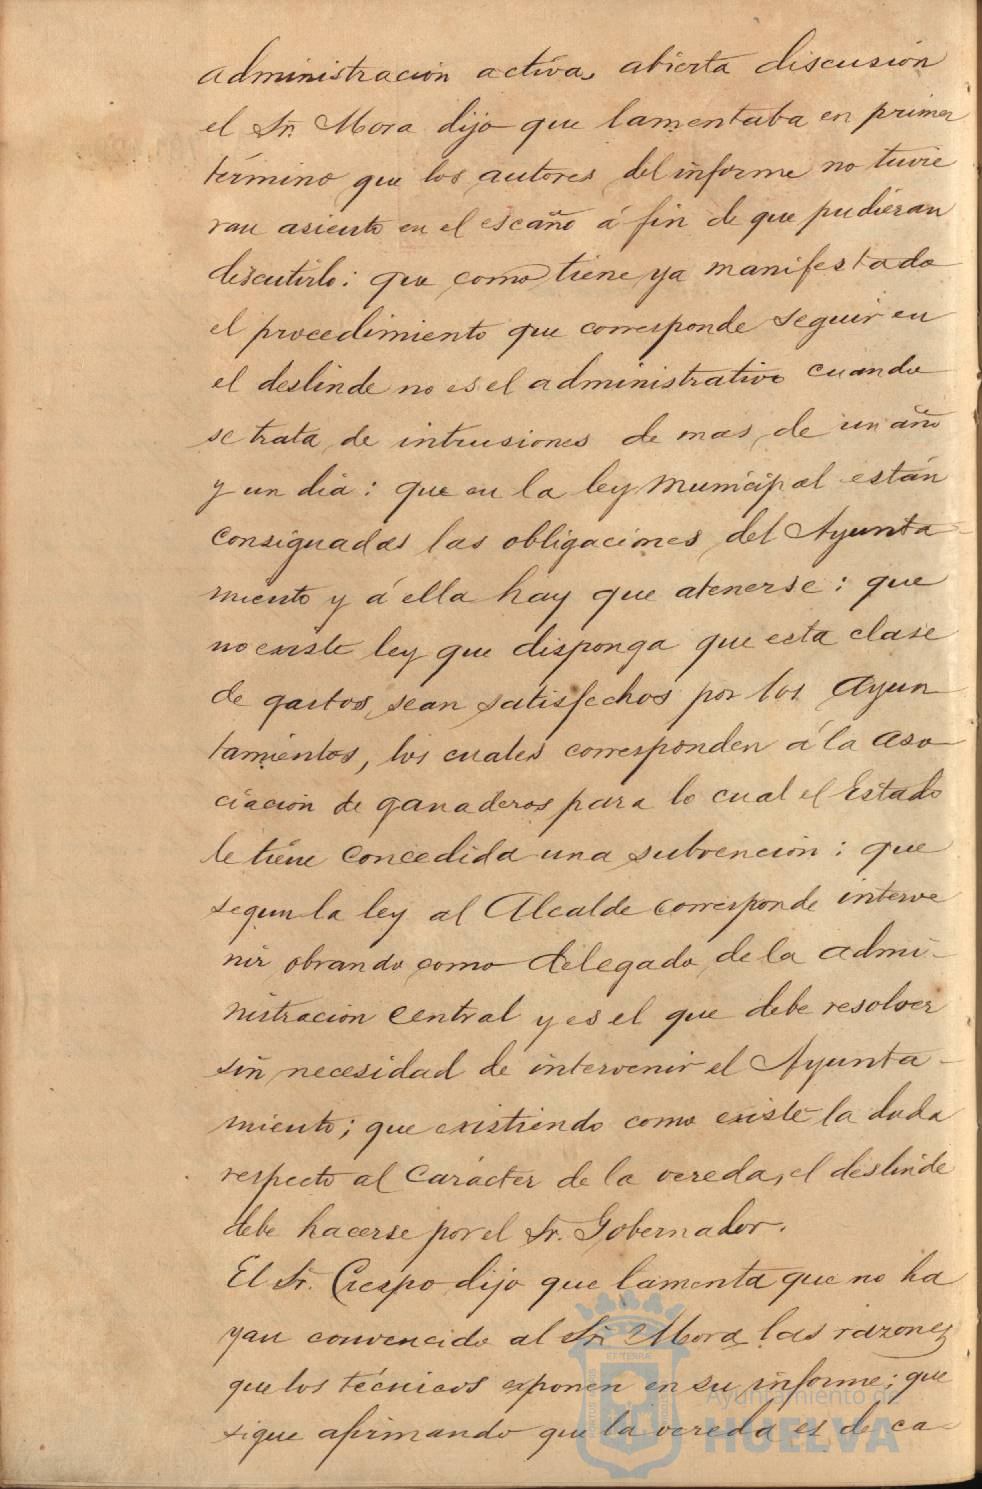 administracion activa, abierta discusion
el Sr. Mora dijo que lamentaba en primer
término que los autores del informe no tuvie
ran asiento en el escaño á fin de que pudieran
discutirlo: que como tiene ya manifestado
el procedimiento que corresponde seguir en
el deslinde no es el administrativo cuando
se trata de intrusiones de mas de un año
y un dia: que en la ley Municipal están
consignadas las obligaciones del Ayunta-
miento y á ella hay que atenerse: que
no existe ley que disponga que esta clase
de gastos sean satisfechos por los Ayun
tamientos, los cuales corresponden á la Aso
ciacion de ganaderos para lo cual el Estado
le tiene concedida una subvencion: que
segun la ley al Alcalde corresponde interve
nir obrando como delegado de la admi-
nistracion central y es el que debe resolver
sin necesidad de intervenir el Ayunta-
miento; que existiendo como existe la duda
respecto al carácter de la vereda, el deslinde
debe hacerse por el Sr. Gobernador.
El Sr. Crespo dijo que lamenta que no ha
yan convencido al Sr. Mora las razones
que los técnicos exponen en su informe; que
sigue afirmando que la vereda es de ca-
Ayuntamiento de
HUELVA